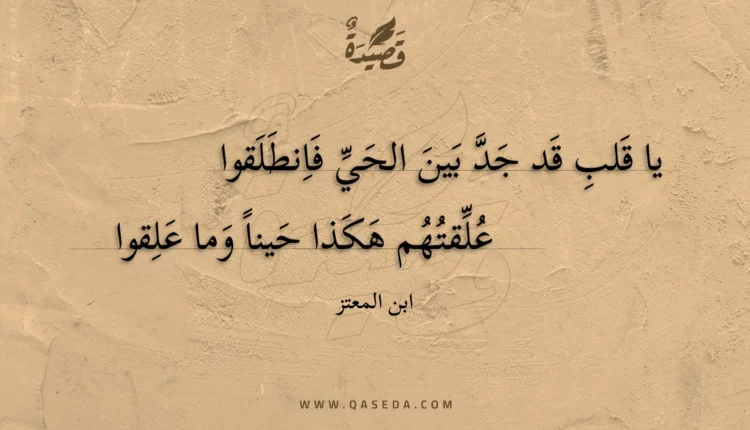 قَصِيدَةٌ
يا قَلبِ قَد جَدَّ بَينَ الحَيِّ فَاِنطَلَقوا
عُلِّقتُهُم هَكَذا حَيناً وَما عَلِقوا
ابن المعتز
WWW.QASEDA.COM